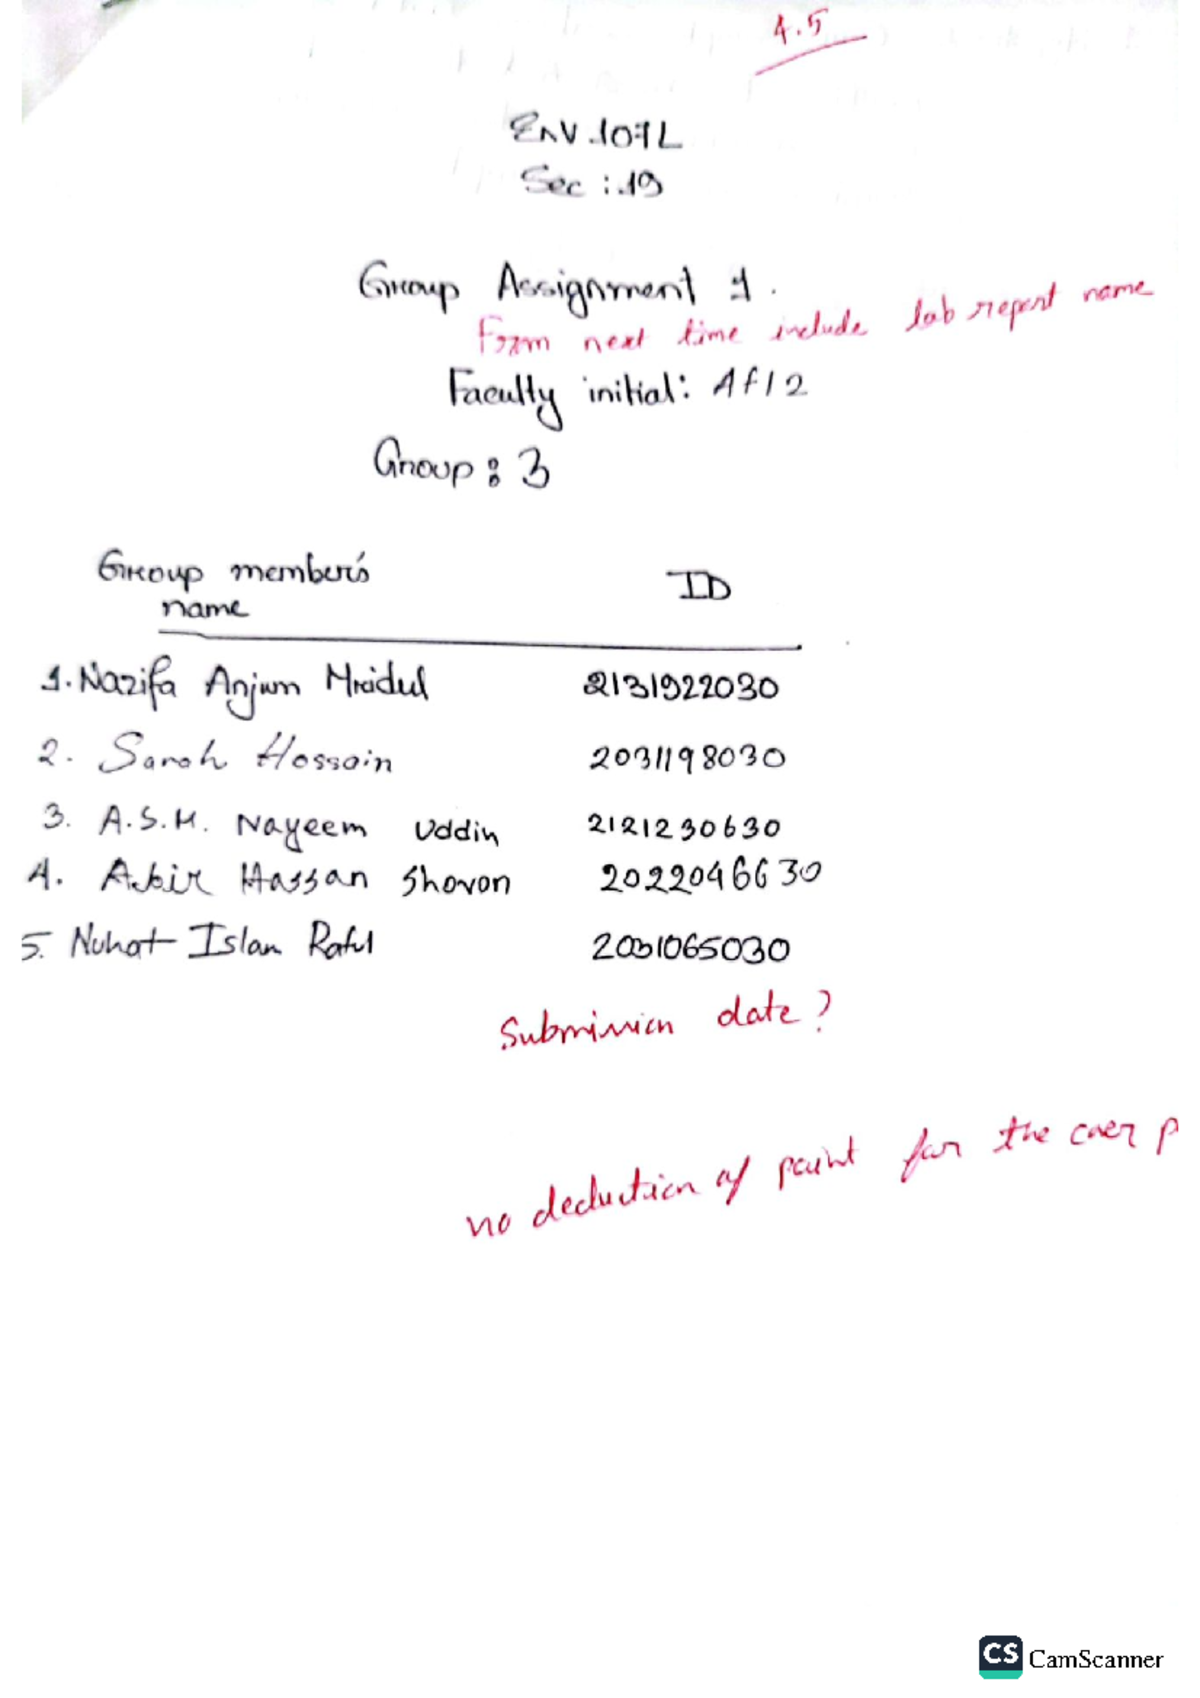 4.5
ENV 107L
Sec : 19
Group Assignment 1.
From next time include lab report name
Faculty initial: AF12
Group: 3
Group member's ID
name
1. Nazifa Anjum Mridul 2131922030
2. Sarah Hossain 2031198030
3. A.S.M. Nayeem Uddin 2121230630
4. Abir Hassan Shovon 2022046630
5. Nuhat Islam 2031065030
Submission date?
no deduction of point for the cover p
CS CamScanner